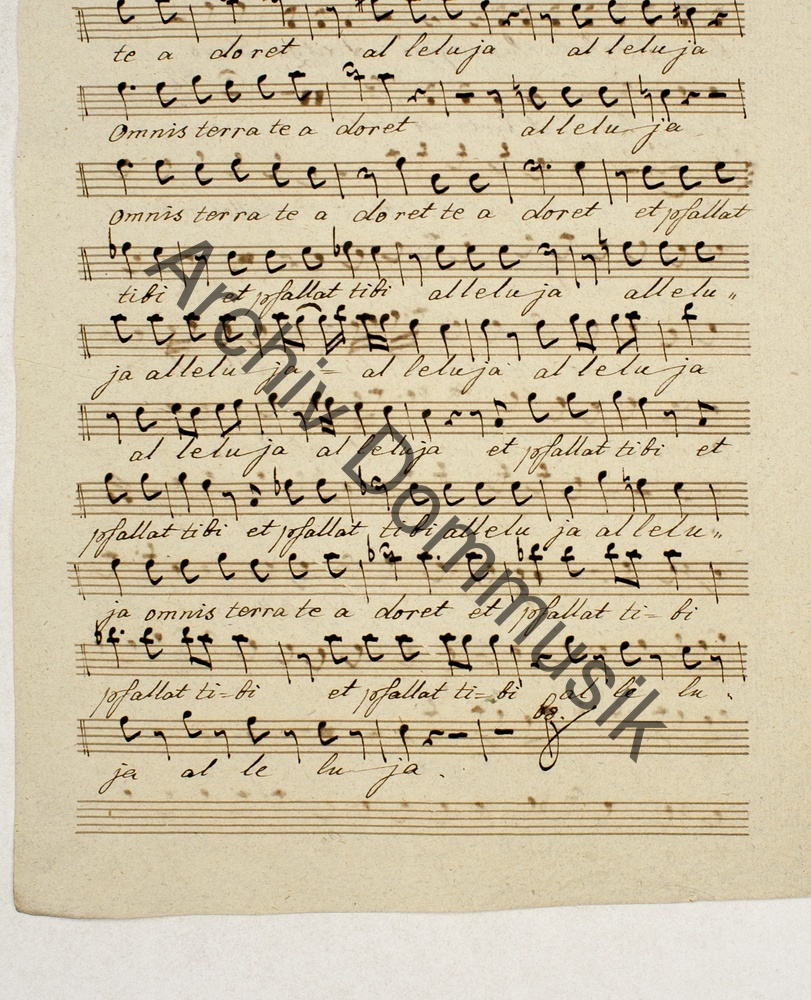 te a doret al leluja al leluja
Omnis terra te a doret al lelu ja
Omnis terra te a doret te a doret et psallat
tibi et psallat tibi alleluja allelu„
ja allelu ja = al leluja al lelu ja
al leluja al leluja et psallat tibi et
psallat tibi et psallat tibi allelu ja al lelu„
ja omnis terra te a doret et psallat ti= bi
psallat ti=bi et psallat ti=bi al le lu„
ja al le lu ja.
Archiv Dommusik